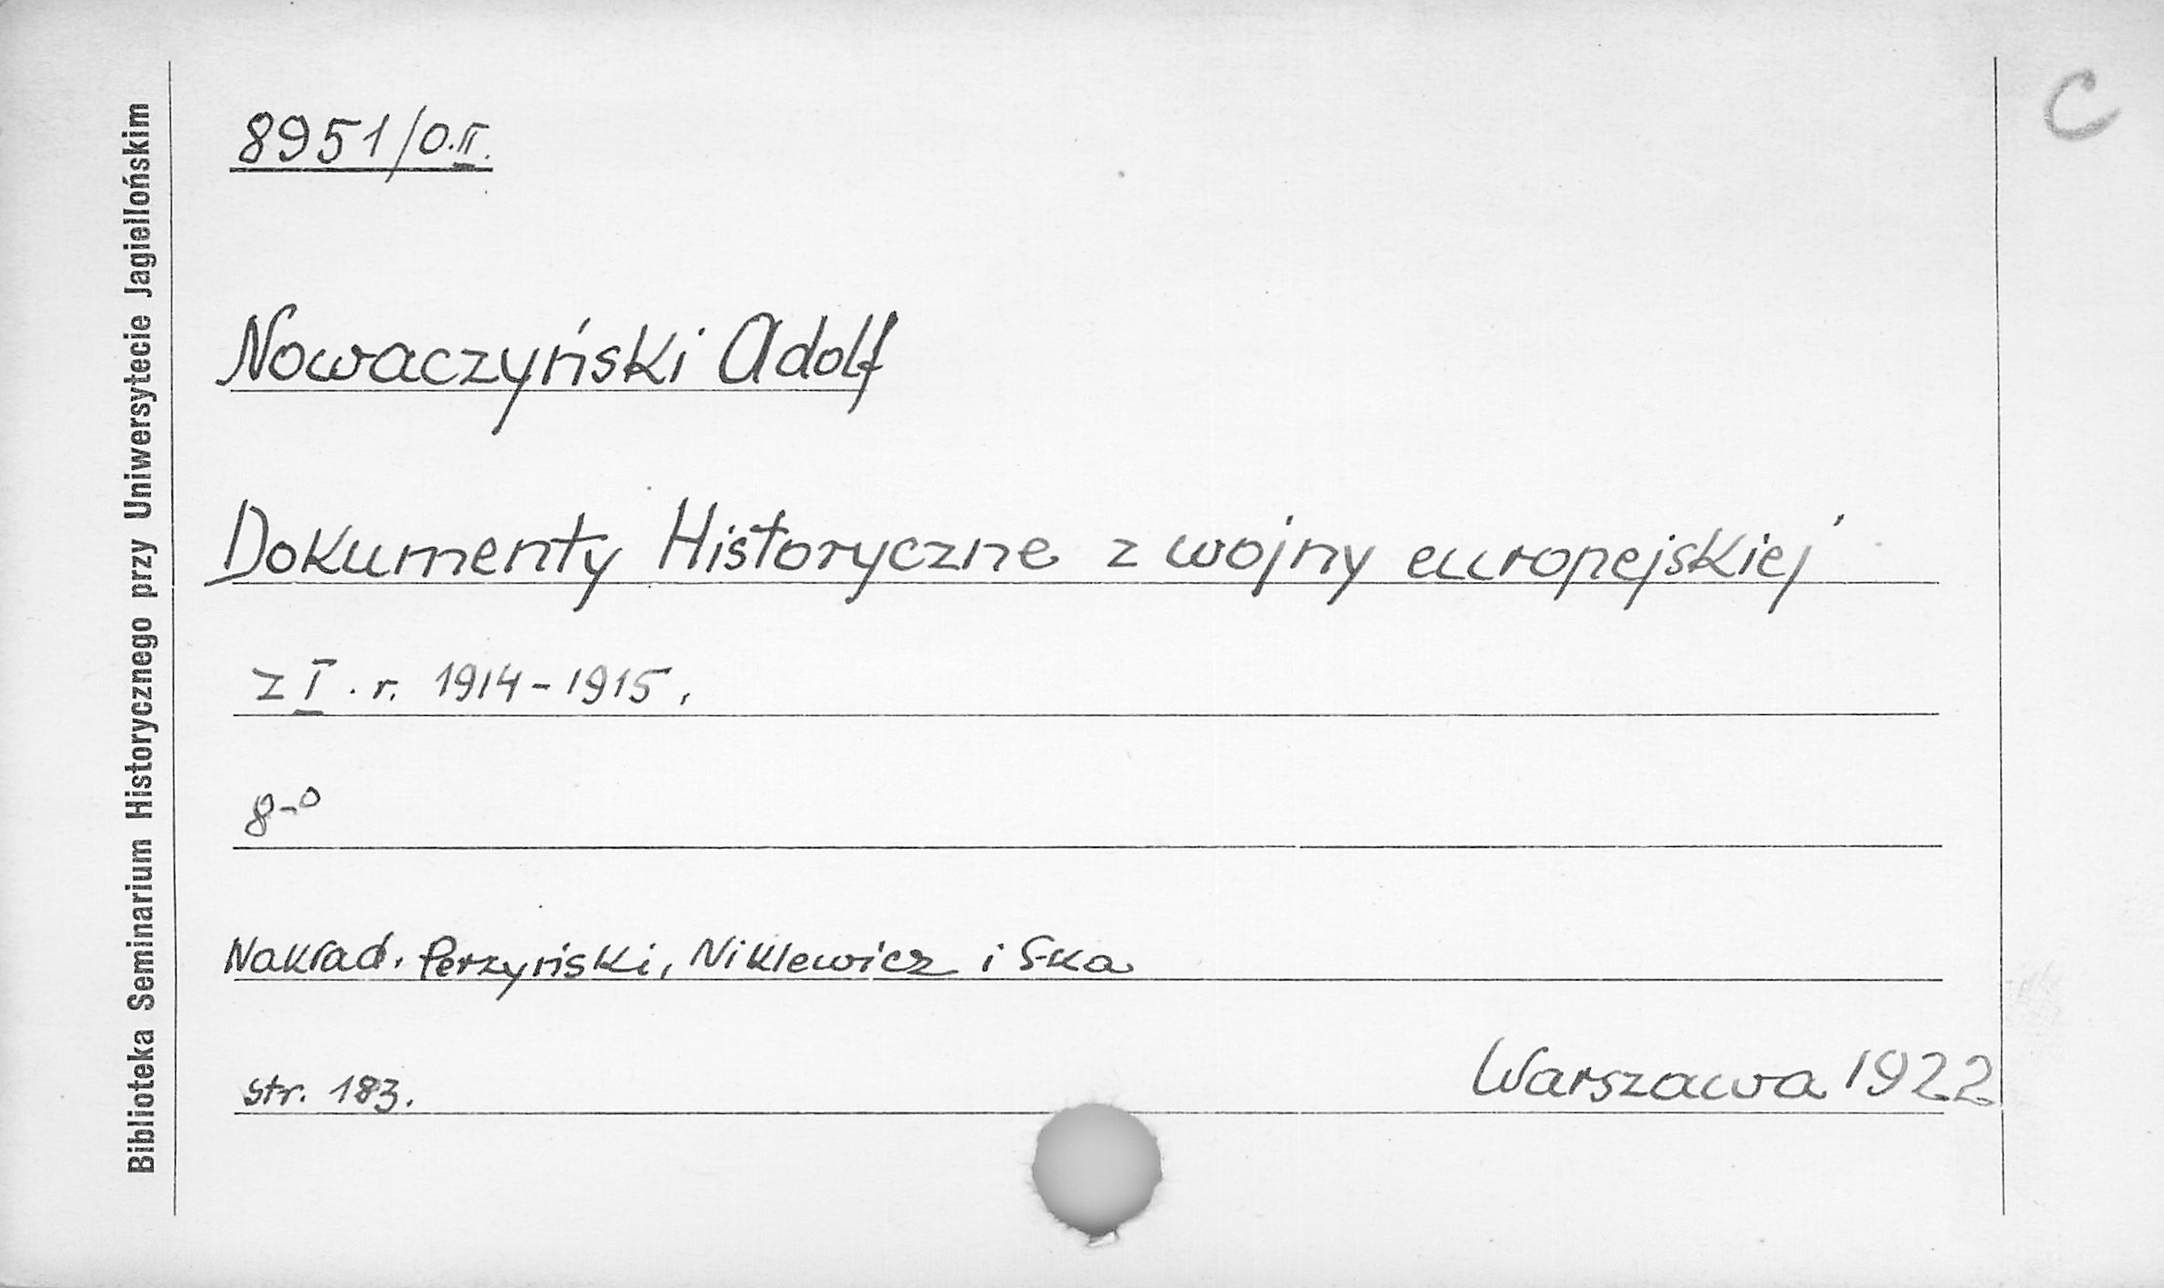 8951/O.II.
C
Nowaczyński Adolf
Dokumenty Historyczne z wojny europejskiej
z I. r. 1914-1915.
8-o
Nakład. Perzyński, Niklewicz i S-ka
str. 183.
Warszawa 1922
Biblioteka Seminarium Historycznego przy Uniwersytecie Jagiellońskim